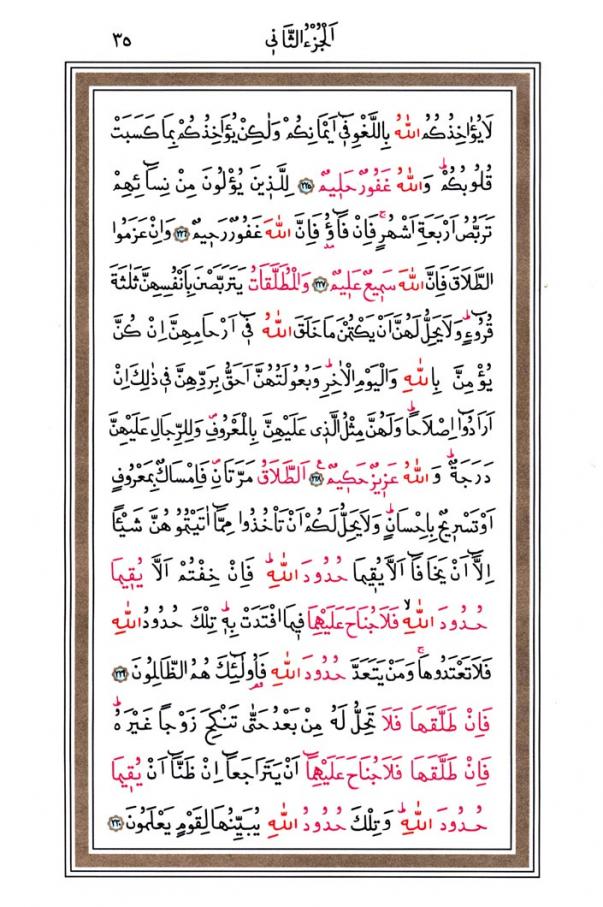 اَلْجُزْءُ الثَّانٖى ٣٥
لَا يُؤَاخِذُكُمُ اللّٰهُ بِاللَّغْوِ فٖٓى اَيْمَانِكُمْ وَلٰكِنْ يُؤَاخِذُكُمْ بِمَا كَسَبَتْ
قُلُوبُكُمْؕ وَاللّٰهُ غَفُورٌ حَلٖيمٌ ﴿٢٢٥﴾ لِلَّذٖينَ يُؤْلُونَ مِنْ نِسَٓائِهِمْ
تَرَبُّصُ اَرْبَعَةِ اَشْهُرٍۚ فَاِنْ فَٓاؤُ۫ فَاِنَّ اللّٰهَ غَفُورٌ رَحٖيمٌ ﴿٢٢٦﴾ وَاِنْ عَزَمُوا
الطَّلَاقَ فَاِنَّ اللّٰهَ سَمٖيعٌ عَلٖيمٌ ﴿٢٢٧﴾ وَالْمُطَلَّقَاتُ يَتَرَبَّصْنَ بِاَنْفُسِهِنَّ ثَلٰثَةَ
قُرُٓوءٍؕ وَلَا يَحِلُّ لَهُنَّ اَنْ يَكْتُمْنَ مَا خَلَقَ اللّٰهُ فٖٓى اَرْحَامِهِنَّ اِنْ كُنَّ
يُؤْمِنَّ بِاللّٰهِ وَالْيَوْمِ الْاٰخِرِؕ وَبُعُولَتُهُنَّ اَحَقُّ بِرَدِّهِنَّ فٖى ذٰلِكَ اِنْ
اَرَادُٓوا اِصْلَاحًاؕ وَلَهُنَّ مِثْلُ الَّذٖى عَلَيْهِنَّ بِالْمَعْرُوفِ وَلِلرِّجَالِ عَلَيْهِنَّ
دَرَجَةٌؕ وَاللّٰهُ عَزٖيزٌ حَكٖيمٌ ﴿٢٢٨﴾ اَلطَّلَاقُ مَرَّتَانِ فَاِمْسَاكٌ بِمَعْرُوفٍ
اَوْ تَسْرٖيحٌ بِاِحْسَانٍؕ وَلَا يَحِلُّ لَكُمْ اَنْ تَأْخُذُوا مِمَّٓا اٰتَيْتُمُوهُنَّ شَيْـًٔا
اِلَّٓا اَنْ يَخَافَٓا اَلَّا يُقٖيمَا حُدُودَ اللّٰهِؕ فَاِنْ خِفْتُمْ اَلَّا يُقٖيمَا
حُدُودَ اللّٰهِۙ فَلَا جُنَاحَ عَلَيْهِمَا فٖيمَا افْتَدَتْ بِهٖؕ تِلْكَ حُدُودُ اللّٰهِ
فَلَا تَعْتَدُوهَاۚ وَمَنْ يَتَعَدَّ حُدُودَ اللّٰهِ فَاُو۬لٰٓئِكَ هُمُ الظَّالِمُونَ ﴿٢٢٩﴾
فَاِنْ طَلَّقَهَا فَلَا تَحِلُّ لَهُ مِنْ بَعْدُ حَتّٰى تَنْكِحَ زَوْجًا غَيْرَهُؕ
فَاِنْ طَلَّقَهَا فَلَا جُنَاحَ عَلَيْهِمَٓا اَنْ يَتَرَاجَعَٓا اِنْ ظَنَّٓا اَنْ يُقٖيمَا
حُدُودَ اللّٰهِؕ وَتِلْكَ حُدُودُ اللّٰهِ يُبَيِّنُهَا لِقَوْمٍ يَعْلَمُونَ ﴿٢٣٠﴾